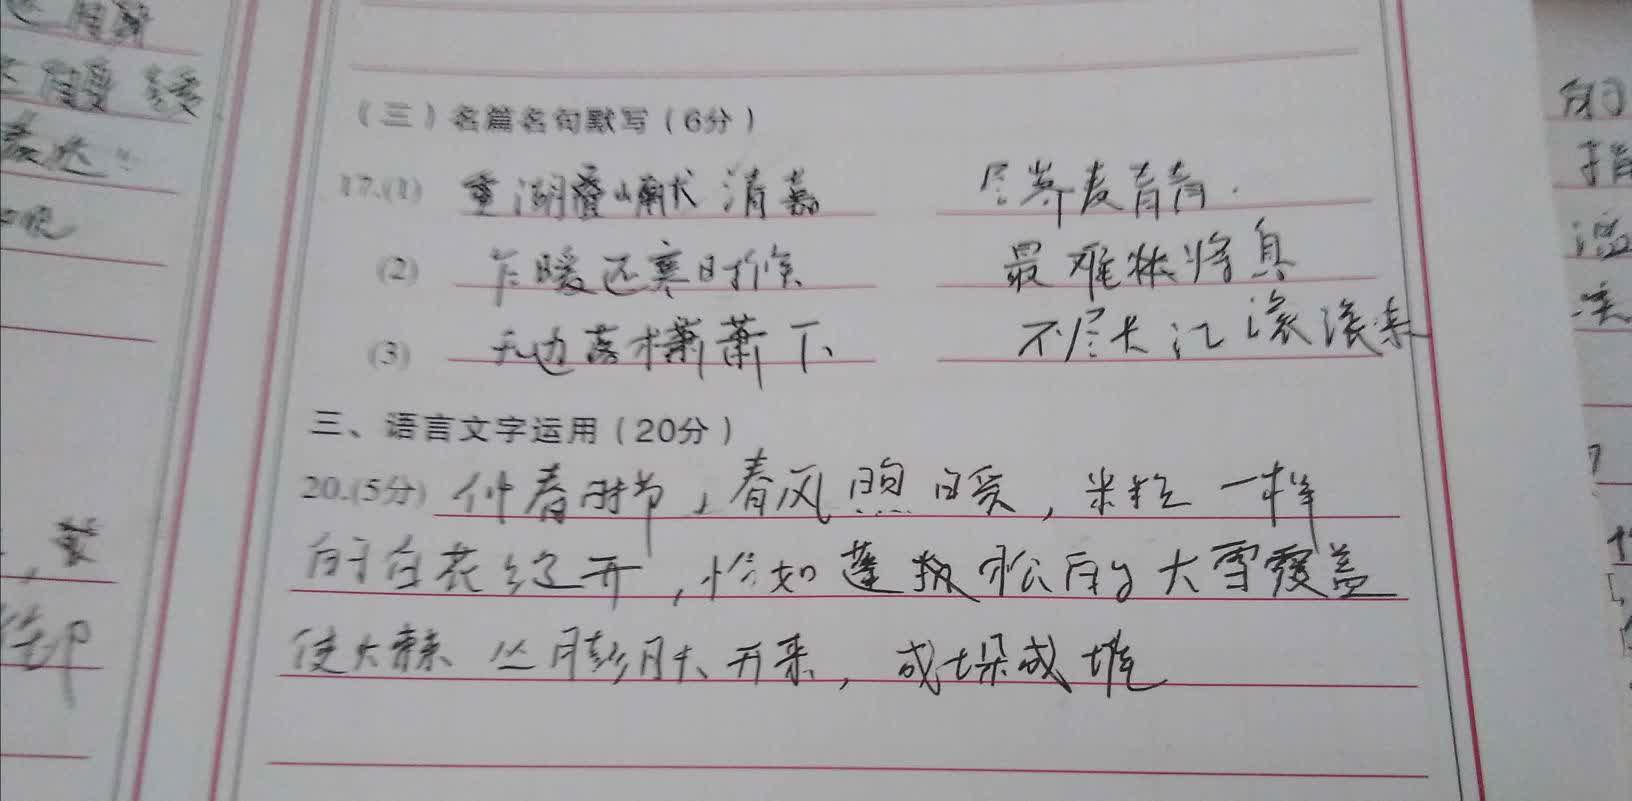 （三）名篇名句默写（6分）
17.(1) 重湖叠巘清嘉 尽荠麦青青.
(2) 乍暖还寒时候 最难将息
(3) 无边落木萧萧下 不尽长江滚滚来
三、语言文字运用（20分）
20.(5分) 仲春时节，春风煦暖，米粒一样
的白花绽开，恰如蓬松的大雪覆盖
使大棘丛膨胀开来，成垛成堆